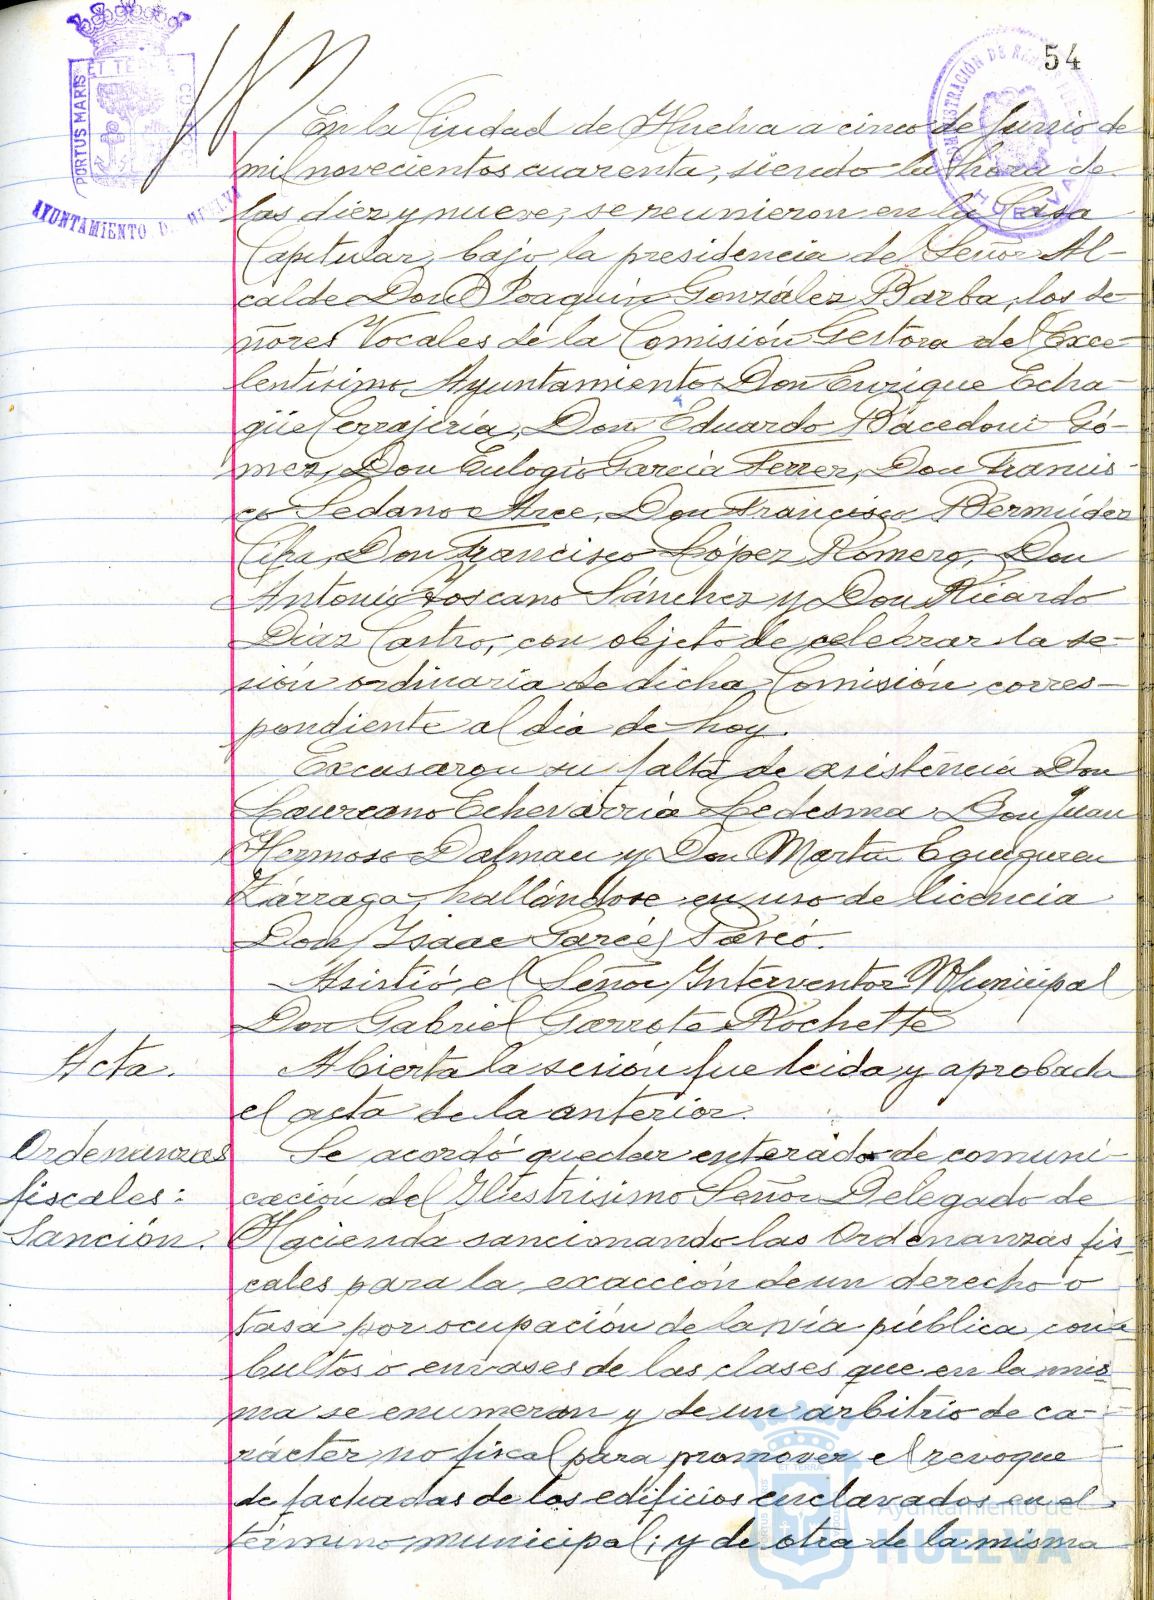 54
PORTUS MARIS
ET TERRAE
AYUNTAMIENTO DE HUELVA
ADMINISTRACIÓN DE
HUELVA
En la Ciudad de Huelva a cinco de Junio de
mil novecientos cuarenta, siendo la hora de
las diez y nueve, se reunieron en la Casa
Capitular, bajo la presidencia del Señor Al-
calde Don Joaquín González Barba, los se-
ñores Vocales de la Comisión Gestora del Exce-
lentísimo Ayuntamiento Don Enrique Echa-
güe Cerrajería, Don Eduardo Bacedoni Gó-
mez, Don Eulogio García Ferrer, Don Francis-
co Sedano Arce, Don Francisco Bermúdez
Don Francisco López Romero, Don
Antonio Toscano Sánchez y Don Ricardo
Díaz Castro, con objeto de celebrar la se-
sión ordinaria de dicha Comisión corres-
pondiente al día de hoy.
Excusaron su falta de asistencia Don
Laureano Echevarría Ledesma Don Juan
Hermoso Dalmau y Don Martín Eguiguren
Zárraga, hallándose en uso de licencia
Don Isaac Garcés
Asistió el Señor Interventor Municipal
Don Gabriel Garrote Rochette
Acta.
Abierta la sesión fue leída y aprobada
el acta de la anterior.
Ordenanzas
fiscales:
Sanción.
Se acordó quedar enterado de comuni-
cación del Ilustrísimo Señor Delegado de
Hacienda sancionando las Ordenanzas fis-
cales para la exacción de un derecho o
tasa por ocupación de la vía pública con
bultos o envases de las clases que en la mis-
ma se enumeran y de un arbitrio de ca-
rácter no fiscal para promover el revoque
de fachadas de los edificios enclavados en el
término municipal; y de otra de la misma
Ayuntamiento de
HUELVA